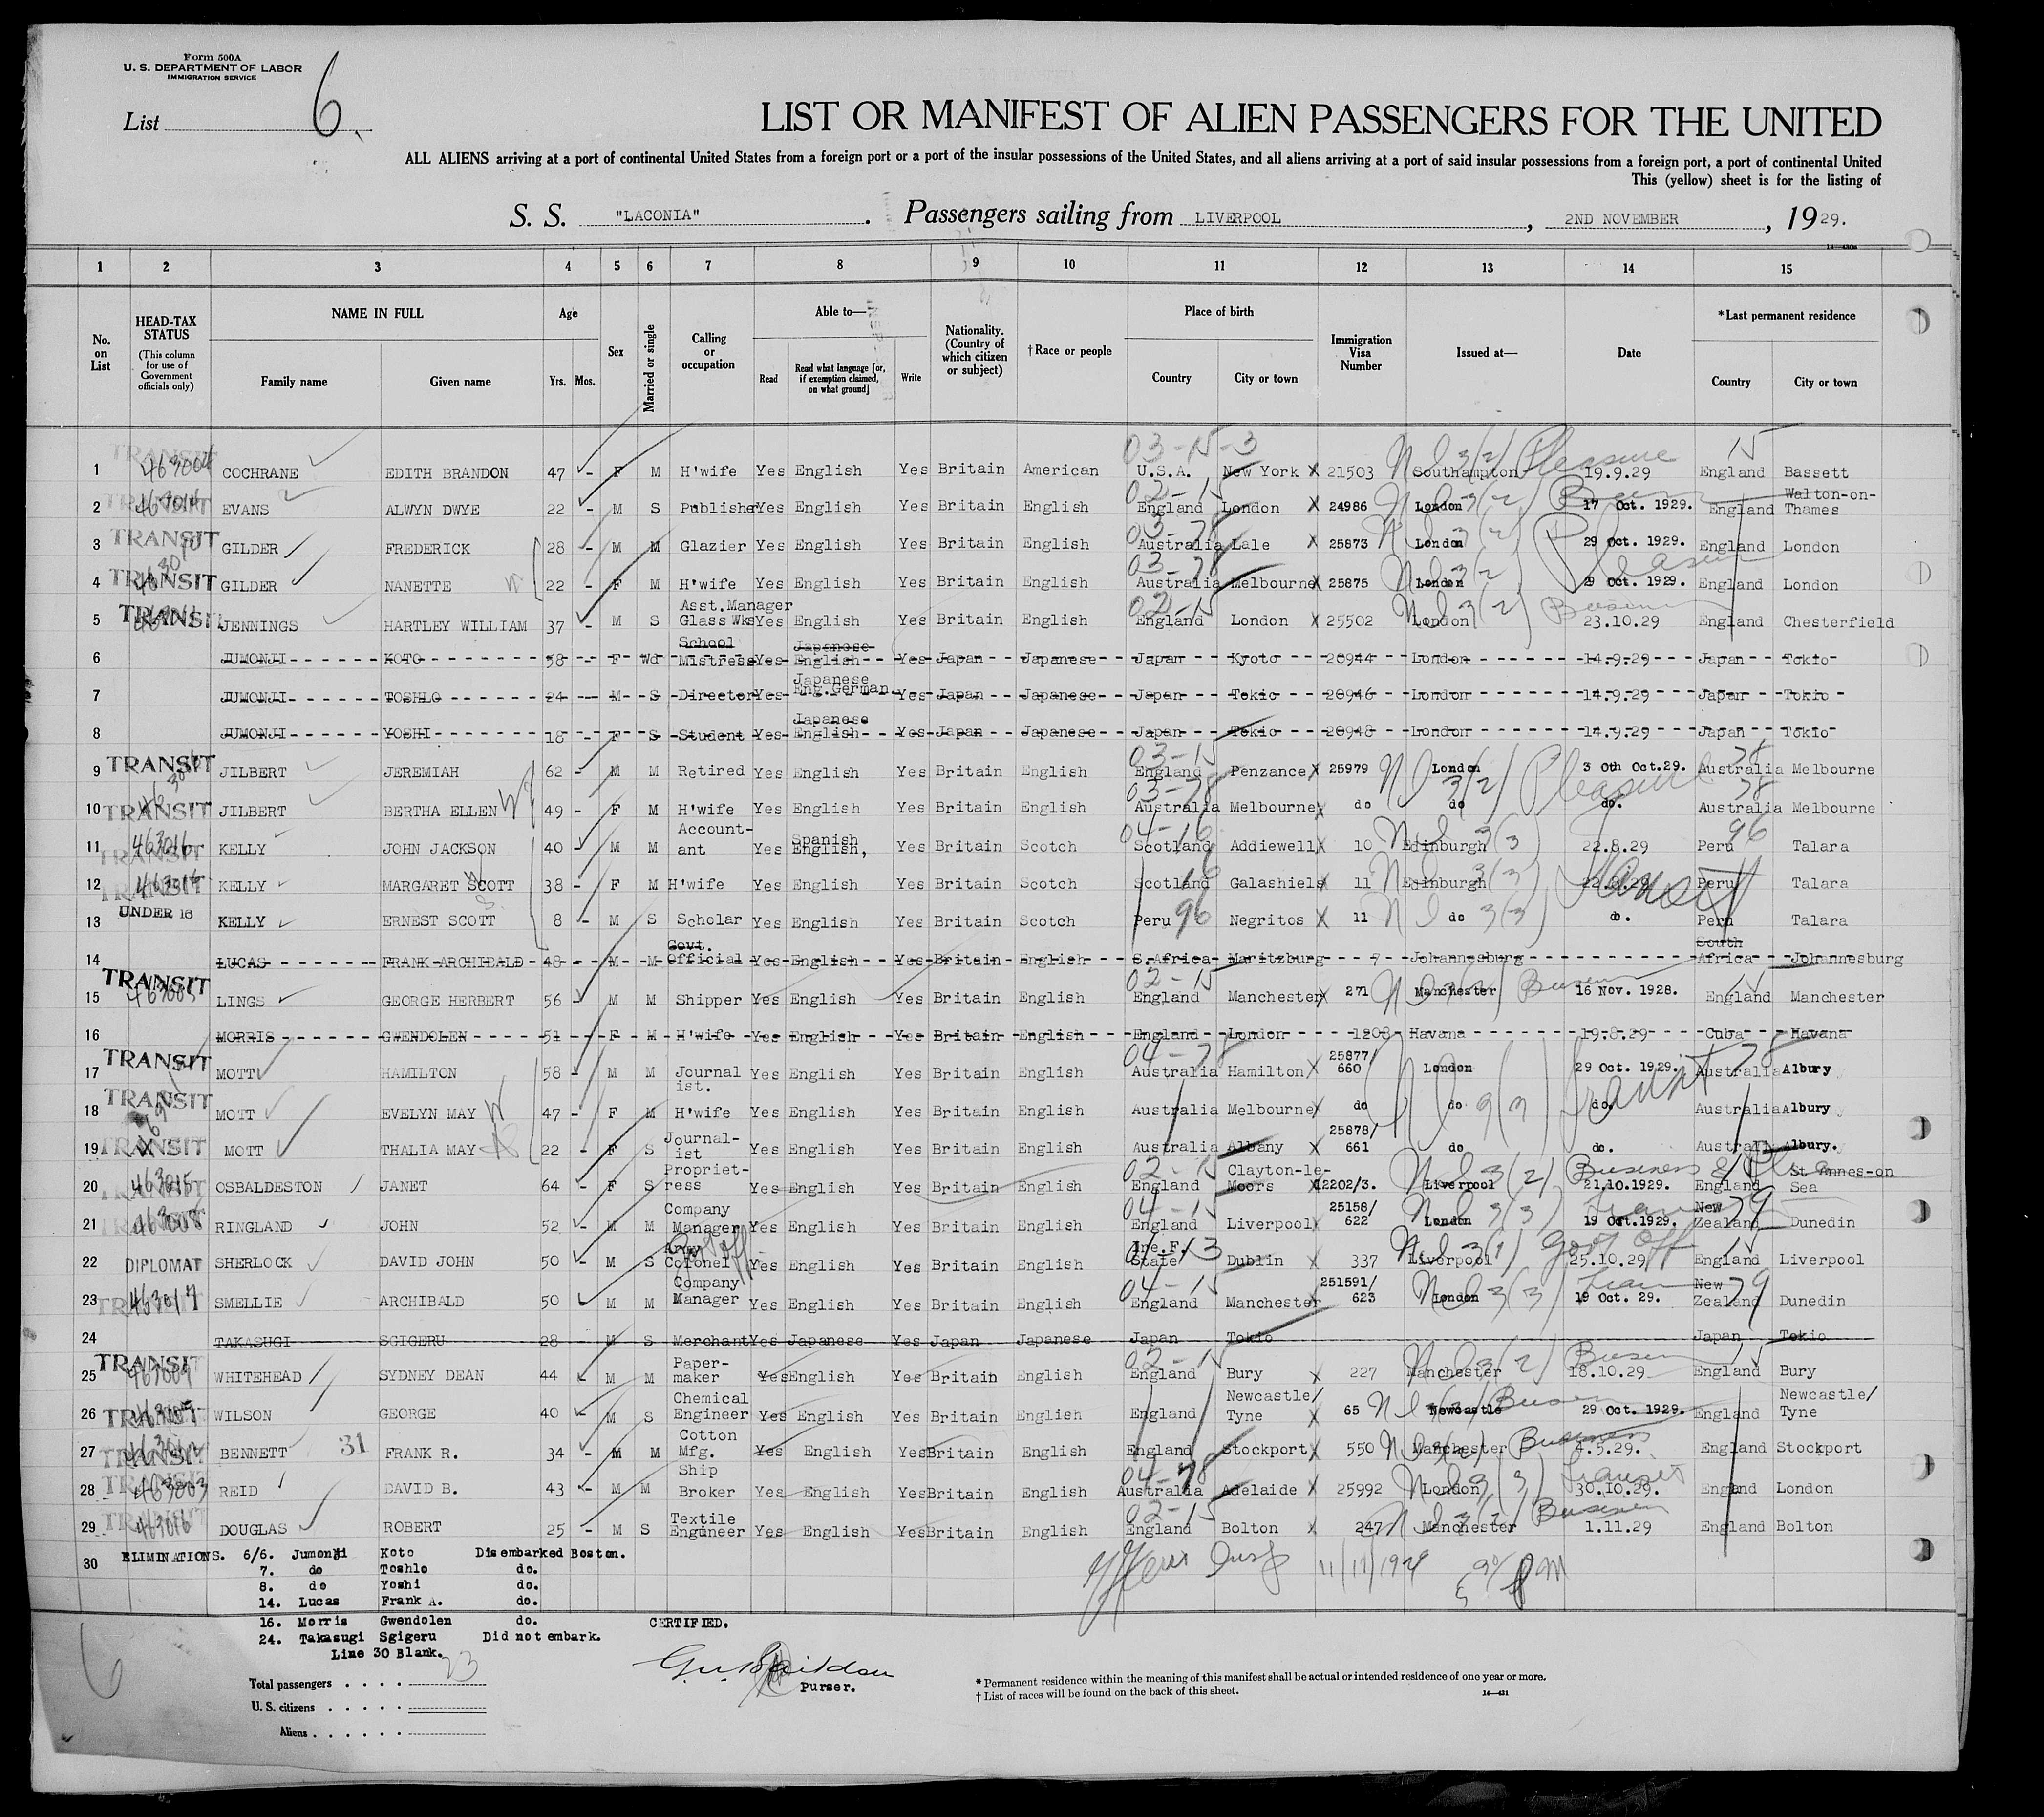 Form 500A
U. S. DEPARTMENT OF LABOR
IMMIGRATION SERVICE
List 6
LIST OR MANIFEST OF ALIEN PASSENGERS FOR THE UNITED
ALL ALIENS arriving at a port of continental United States from a foreign port or a port of the insular possessions of the United States, and all aliens arriving at a port of said insular possessions from a foreign port, a port of continental United
This (yellow) sheet is for the listing of
S. S. "LACONIA". Passengers sailing from LIVERPOOL, 2ND NOVEMBER, 1929.
1 2 3 4 5 6 7 8 9 10 11 12 13 14 15
No. on List HEAD-TAX STATUS (This column for use of Government officials only) NAME IN FULL Family name Given name Age Yrs. Mos. Sex Married or single Calling or occupation Able to— Read Read what language [or, if exemption claimed, on what ground] Write Nationality. (Country of which citizen or subject) †Race or people Place of birth Country City or town Immigration Visa Number Issued at— Date *Last permanent residence Country City or town
03-15-3 15
1 TRANSIT COCHRANE EDITH BRANDON 47 - F M H'wife Yes English Yes Britain American U.S.A. New York X 21503 Southampton Pleasure 19.9.29 England Bassett
02-15
2 TRANSIT EVANS ALWYN DWYE 22 - M S Publisher Yes English Yes Britain English England London X 24986 London 17 Oct. 1929. England Walton-on-Thames
03-78
3 TRANSIT GILDER FREDERICK 28 - M M Glazier Yes English Yes Britain English Australia Lale X 25873 London 29 Oct. 1929. England London
03-78
4 TRANSIT GILDER NANETTE W 22 - F M H'wife Yes English Yes Britain English Australia Melbourne X 25875 London Pleasure 29 Oct. 1929. England London
02-15
5 TRANSIT JENNINGS HARTLEY WILLIAM 37 - M S Asst.Manager Glass Wks Yes English Yes Britain English England London X 25502 London 23.10.29 England Chesterfield
6 JUMONJI KOTO 58 - F Wd School Mistress Yes Japanese English Yes Japan Japanese Japan Kyoto 20944 London 14.9.29 Japan Tokio
7 JUMONJI TOSHLO 24 - M S Director Yes Japanese Eng.German. Yes Japan Japanese Japan Tokio 20946 London 14.9.29 Japan Tokio
8 JUMONJI YOSHI 18 - F S Student Yes Japanese English Yes Japan Japanese Japan Tokio 20948 London 14.9.29 Japan Tokio
03-15 78
9 TRANSIT JILBERT JEREMIAH 62 - M M Retired Yes English Yes Britain English England Penzance X 25979 London Pleasure 3 0th Oct.29. Australia Melbourne
03-78 78
10 TRANSIT JILBERT BERTHA ELLEN W 49 - F M H'wife Yes English Yes Britain English Australia Melbourne X do do do. Australia Melbourne
04-16 96
11 TRANSIT 463016 KELLY JOHN JACKSON 40 - M M Account-ant Yes Spanish English, Yes Britain Scotch Scotland Addiewell X 10 Edinburgh 22.8.29 Peru Talara
12 TRANSIT KELLY MARGARET SCOTT W 38 - F M H'wife Yes English Yes Britain Scotch Scotland Galashiels X 11 Edinburgh Transit 22.8.29 Peru Talara
13 UNDER 16 KELLY ERNEST SCOTT 8 - M S Scholar Yes English Yes Britain Scotch Peru 96 Negritos X 11 do do. Peru Talara
14 LUCAS FRANK ARCHIBALD 48 - M M Govt. Official Yes English Yes Britain English S.Africa Maritzburg 7 Johannesburg South Africa Johannesburg
02-15 15
15 TRANSIT 463005 LINGS GEORGE HERBERT 56 - M M Shipper Yes English Yes Britain English England Manchester X 271 Manchester 16 Nov. 1928. England Manchester
16 MORRIS GWENDOLEN 51 - F M H'wife Yes English Yes Britain English England London 1208 Havana 19.8.29 Cuba Havana
04-78 78
17 TRANSIT MOTT HAMILTON 58 - M M Journal ist. Yes English Yes Britain English Australia Hamilton X 25877/660 London 29 Oct. 1929. Australia Albury
18 TRANSIT MOTT EVELYN MAY W 47 - F M H'wife Yes English Yes Britain English Australia Melbourne X do do Transit do. Australia Albury
19 TRANSIT MOTT THALIA MAY 22 - F S Journal-ist Yes English Yes Britain English Australia Albany X 25878/661 do do. Australia Albury.
02-15
20 TRANSIT 463015 OSBALDESTON JANET 64 - F S Propriet-ress Yes English Yes Britain English England Clayton-le-Moors X 12202/3. Liverpool Business 21.10.1929. England St Annes-on Sea
04-15 79
21 TRANSIT 463008 RINGLAND JOHN 52 - M M Company Manager Yes English Yes Britain English England Liverpool X 25158/622 London 19 Oct.1929. New Zealand Dunedin
13 15
22 DIPLOMAT SHERLOCK DAVID JOHN 50 - M S Army Colonel Yes English Yes Britain English Ire.F. State Dublin 337 Liverpool Govt Off 25.10.29 England Liverpool
04-15 79
23 TRANSIT 463017 SMELLIE ARCHIBALD 50 - M M Company Manager Yes English Yes Britain English England Manchester 251591/623 London 19 Oct. 29. New Zealand Dunedin
24 TAKASUGI SGIGERU 28 - M S Merchant Yes Japanese Yes Japan Japanese Japan Tokio Japan Tokio
02-15 15
25 TRANSIT 463009 WHITEHEAD SYDNEY DEAN 44 - M M Paper-maker Yes English Yes Britain English England Bury X 227 Manchester 18.10.29 England Bury
26 TRANSIT WILSON GEORGE 40 - M S Chemical Engineer Yes English Yes Britain English England Newcastle/Tyne X 65 Newcastle 29 Oct. 1929. England Newcastle/Tyne
27 TRANSIT BENNETT 31 FRANK R. 34 - M M Cotton Mfg. Yes English Yes Britain English England Stockport X 550 Manchester Business 4.5.29. England Stockport
04-78
28 TRANSIT 463003 REID DAVID B. 43 - M M Ship Broker Yes English Yes Britain English Australia Adelaide X 25992 London Transit 30.10.29. England London
02-15
29 TRANSIT 463016 DOUGLAS ROBERT 25 - M S Textile Engineer Yes English Yes Britain English England Bolton X 247 Manchester 1.11.29 England Bolton
30 ELIMINATIONS. 6/6. Jumonji Koto Disembarked Boston.
7. do Toshlo do.
8. do Yoshi do.
14. Lucas Frank A. do.
16. Morris Gwendolen do. CERTIFIED.
24. Takasugi Sgigeru Did not embark.
Line 30 Blank.
11/11/1929
6
Total passengers 23
U. S. citizens
Aliens
Purser.
* Permanent residence within the meaning of this manifest shall be actual or intended residence of one year or more.
† List of races will be found on the back of this sheet.
14—431